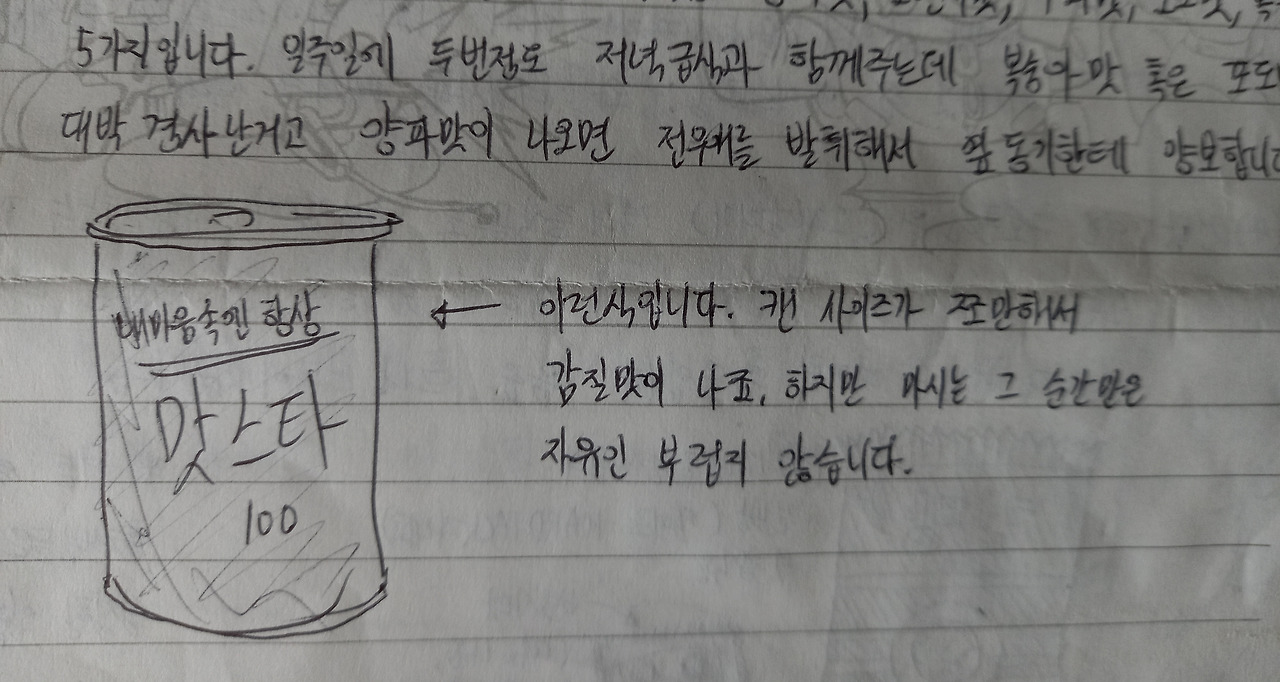 5가지입니다. 일주일에 두번정도 저녁급식과 함께주는데 복숭아맛 혹은 포도
대박 경사난거고 양파맛이 나오면 전우애를 발휘해서 옆동기한테 양보합니다
내마음속엔 항상
맛스타
100
← 이런식입니다. 캔 사이즈가 쪼만해서
감질맛이 나죠. 하지만 마시는 그 순간만은
자유인 부럽지 않습니다.